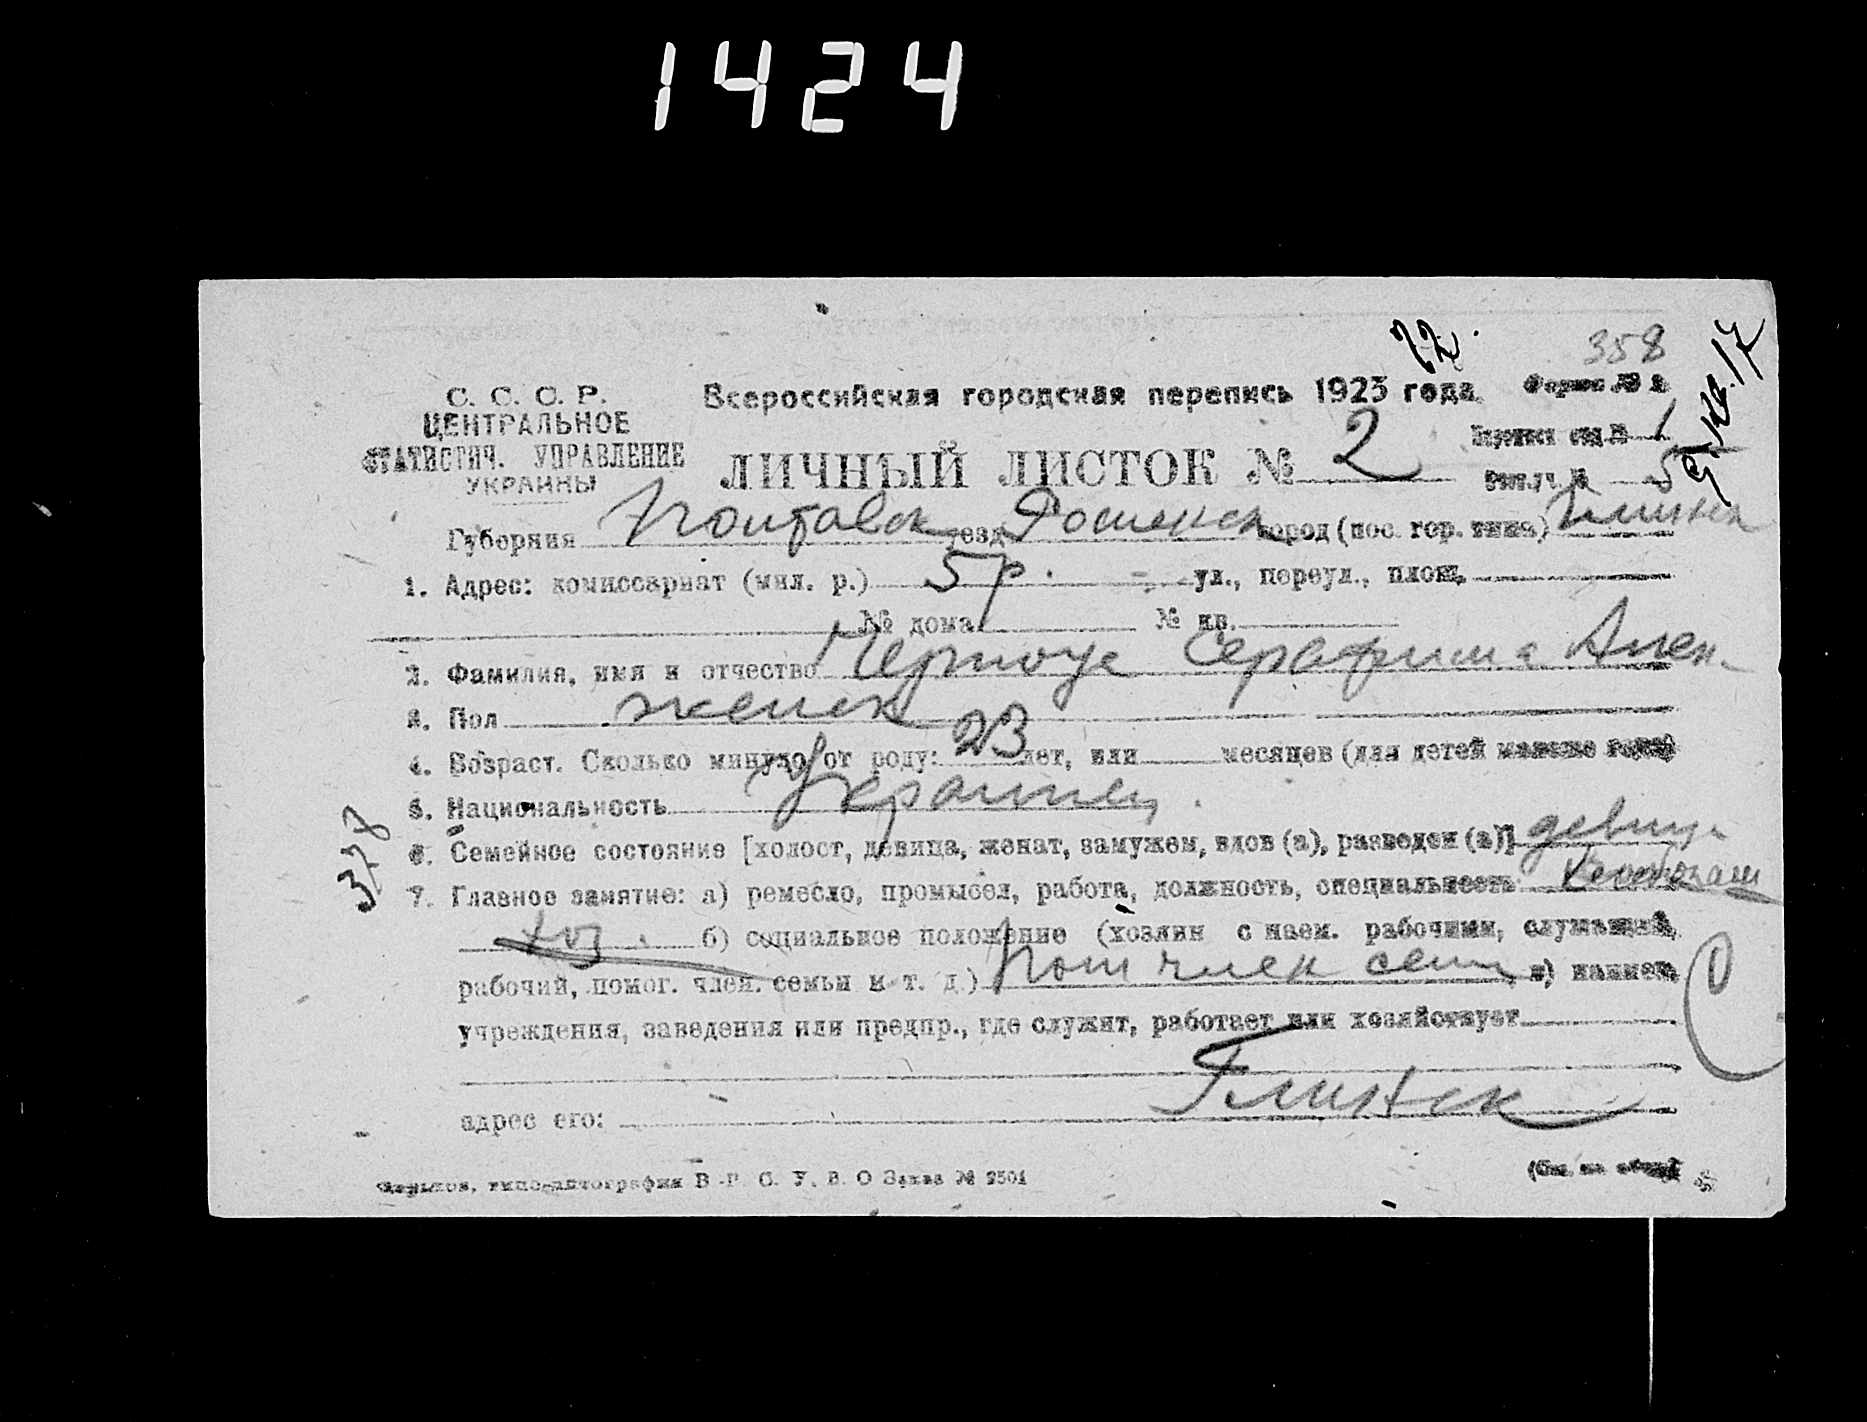 1424
22.
358
С. С. С. Р.
ЦЕНТРАЛЬНОЕ
СТАТИСТИЧ. УПРАВЛЕНИЕ
УКРАИНЫ
Всероссийская городская перепись 1923 года
Форма № 2
ЛИЧНЫЙ ЛИСТОК № 2
1
5
Губерния Полтавск уезд Роменск город (пос. гор. типа) Глинск
1. Адрес: комиссариат (мил. р.) 5 р. ул., переул., площ.
№ дома № кв.
2. Фамилия, имя и отчество Серафима Алек
3. Пол женск
4. Возраст. Сколько минуло от роду: 23 лет, или месяцев (для детей моложе года)
5. Национальность Украинец.
6. Семейное состояние [холост, девица, женат, замужем, вдов (а), разведен (а)] девица
378
7. Главное занятие: а) ремесло, промысел, работа, должность, специальность
хоз. б) социальное положение (хозяин с наем. рабочими, служащий,
рабочий, помог. член. семьи и т. д.) Пом член семь в) наимен.
учреждения, заведения или предпр., где служит, работает или хозяйствует
адрес его: Глинск
Харьков, типо-литография В. Р. С. У. В. О Заказ № 2501
(См. на обор.)